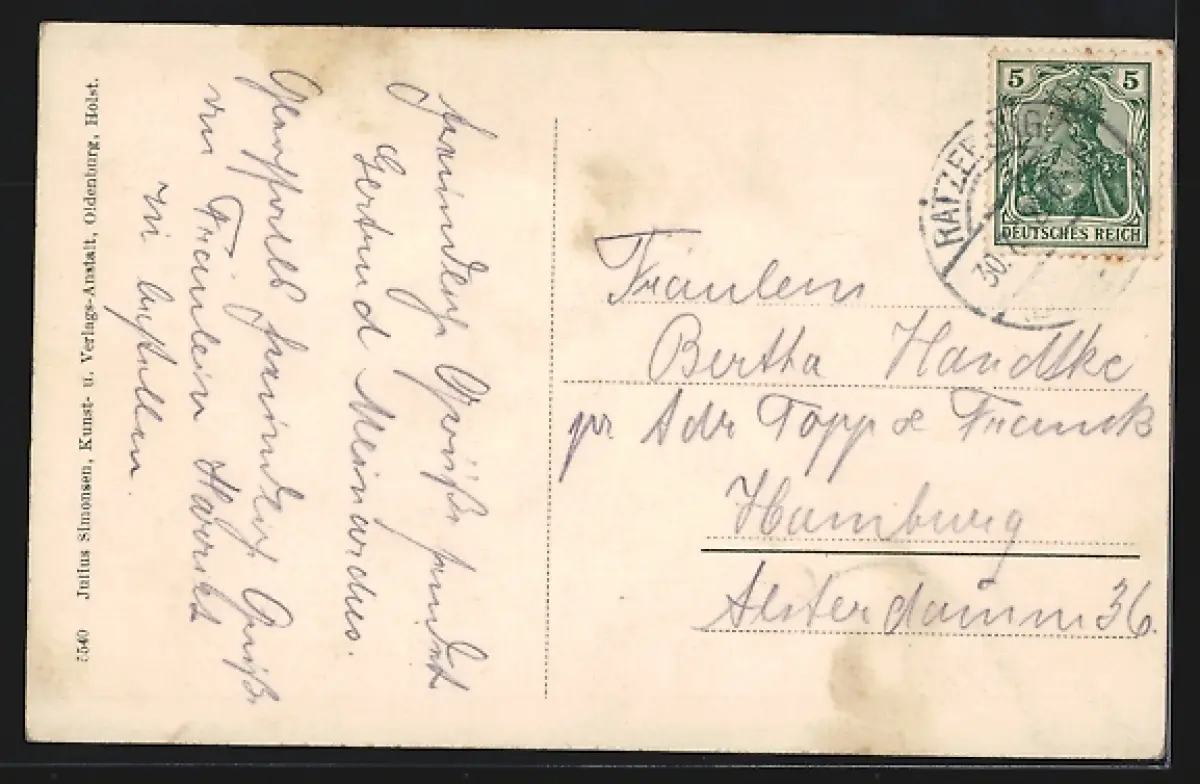 5540 Julius Simonsen, Kunst- u. Verlags-Anstalt, Oldenburg, Holst.
Freundlich Grüße sendet
Gertrud Meinardus.
Gleichfalls freundlich Grüße
von Fräulein
zu bestellen.
5 5
DEUTSCHES REICH
RATZEBURG
30.
Fräulein
Bertha Handtke
pr Adr Topp & Franck
Hamburg
Alsterdamm 36.